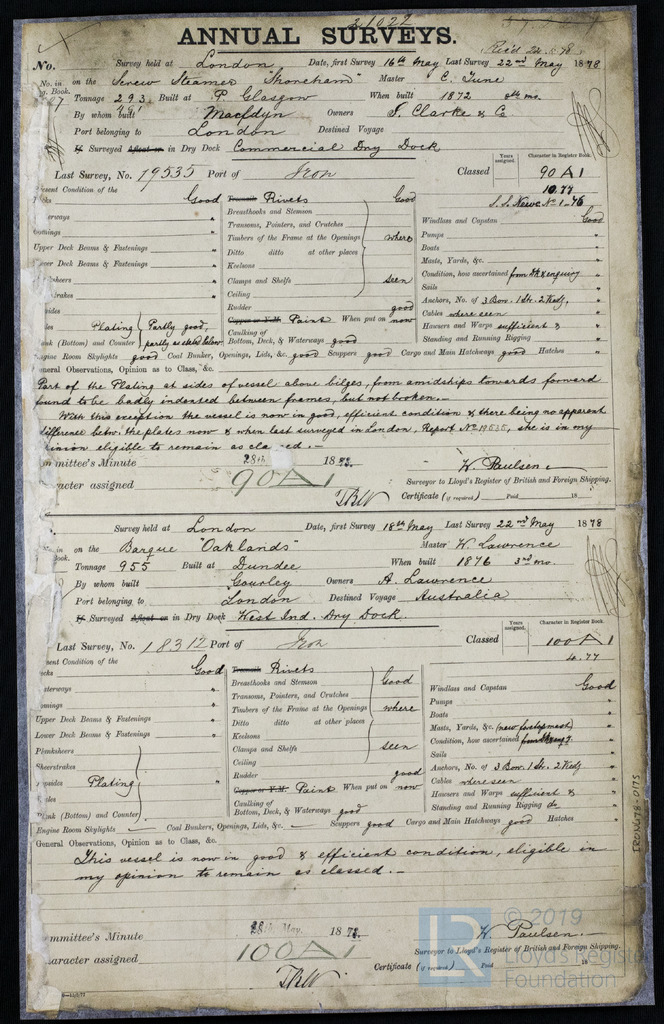 21022
ANNUAL SURVEYS.
Rec'd 22.5.78
No. Survey held at London Date, first Survey 16th May Last Survey 22nd May 1878
No. in on the Screw Steamer "Shoreham" Master C. Tune
Book. Tonnage 293 Built at P. Glasgow When built 1872 mo.
By whom built Macfdyn Owners S. Clarke & Co
Port belonging to London Destined Voyage
If Surveyed Afloat or in Dry Dock Commercial Dry Dock
Last Survey, No. 19535 Port of Iron Classed
Years assigned. Character in Register Book.
90 A 1
10.77
S.S. Newc. No 1-76
esent Condition of the
Good
Treenails Rivets Good
Breasthooks and Stemson
Transoms, Pointers, and Crutches
Timbers of the Frame at the Openings where
Ditto ditto at other places
Keelsons
Clamps and Shelfs seen
Ceiling
Rudder good
Copper or Y.M. Paint When put on now
Caulking of
Bottom, Deck, & Waterways good
Windlass and Capstan Good
Pumps "
Boats "
Masts, Yards, &c. "
Condition, how ascertained from Dk & enquiry
Sails "
Anchors, No. of 3 Bow. 1 St. 2 Kedg. "
Cables where seen "
Hawsers and Warps sufficient & "
Standing and Running Rigging "
Upper Deck Beams & Fastenings "
wer Deck Beams & Fastenings "
Plating Partly good,
ank (Bottom) and Counter partly as stated below
ngine Room Skylights good Coal Bunker, Openings, Lids, &c. good Scuppers good Cargo and Main Hatchways good Hatches "
eneral Observations, Opinion as to Class, &c.
Part of the Plating at sides of vessel above bilges, from amidships towards forward
found to be badly indented between frames, but not broken.
With this exception the vessel is now in good, efficient condition & there being no apparent
difference betw. the plates now & when last surveyed in London, Report No 19535, she is in my
opinion eligible to remain as classed.
mmittee's Minute 28th 1878.
racter assigned 90A1
W. Paulsen
Surveyor to Lloyd's Register of British and Foreign Shipping.
Certificate (if required) Paid 18
Survey held at London Date, first Survey 18th May Last Survey 22nd May 1878
in on the Barque "Oaklands" Master W. Lawrence
ook. Tonnage 955 Built at Dundee When built 1876 3rd mo.
By whom built Gourley Owners A. Lawrence
Port belonging to London Destined Voyage Australia
If Surveyed Afloat or in Dry Dock West Ind. Dry Dock.
Last Survey, No. 18312 Port of Iron Classed
Years assigned. Character in Register Book.
100 A 1
4.77
ent Condition of the
Good
Treenails Rivets Good
Breasthooks and Stemson
Transoms, Pointers, and Crutches
Timbers of the Frame at the Openings where
Ditto ditto at other places
Keelsons
Clamps and Shelfs seen
Ceiling
Rudder good
Copper or Y.M. Paint When put on now
Caulking of
Bottom, Deck, & Waterways good
Windlass and Capstan Good
Pumps "
Boats "
Masts, Yards, &c. (new foretopmast) "
Condition, how ascertained
Sails "
Anchors, No. of 3 Bow. 1 St. 2 Kedg "
Cables where seen "
Hawsers and Warps sufficient & "
Standing and Running Rigging do "
Upper Deck Beams & Fastenings "
Lower Deck Beams & Fastenings "
Planksheers
Sheerstrakes
Plating
Plank (Bottom) and Counter
Engine Room Skylights — Coal Bunkers, Openings, Lids, &c. — Scuppers good Cargo and Main Hatchways good Hatches "
General Observations, Opinion as to Class, &c.
This vessel is now in good & efficient condition, eligible in
my opinion to remain as classed.
mmittee's Minute 28th May. 1878.
aracter assigned 100A1
W. Paulsen
Surveyor to Lloyd's Register of British and Foreign Shipping.
Certificate (if required) Paid 18
IRON478-0175
LR © 2019
Lloyd's Register
Foundation